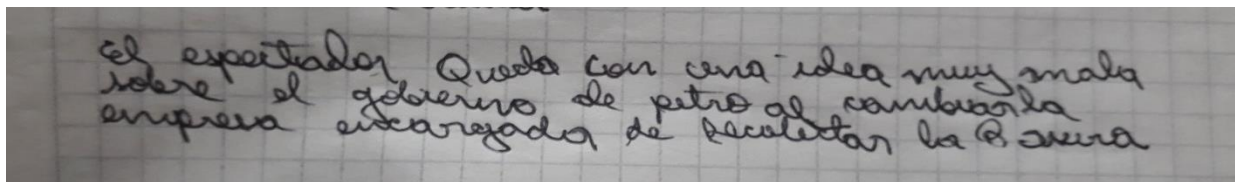 el espectador Queda con una idea muy mala
sobre el gobierno de petro al cambiar la
empresa encargada de recolectar la Basura